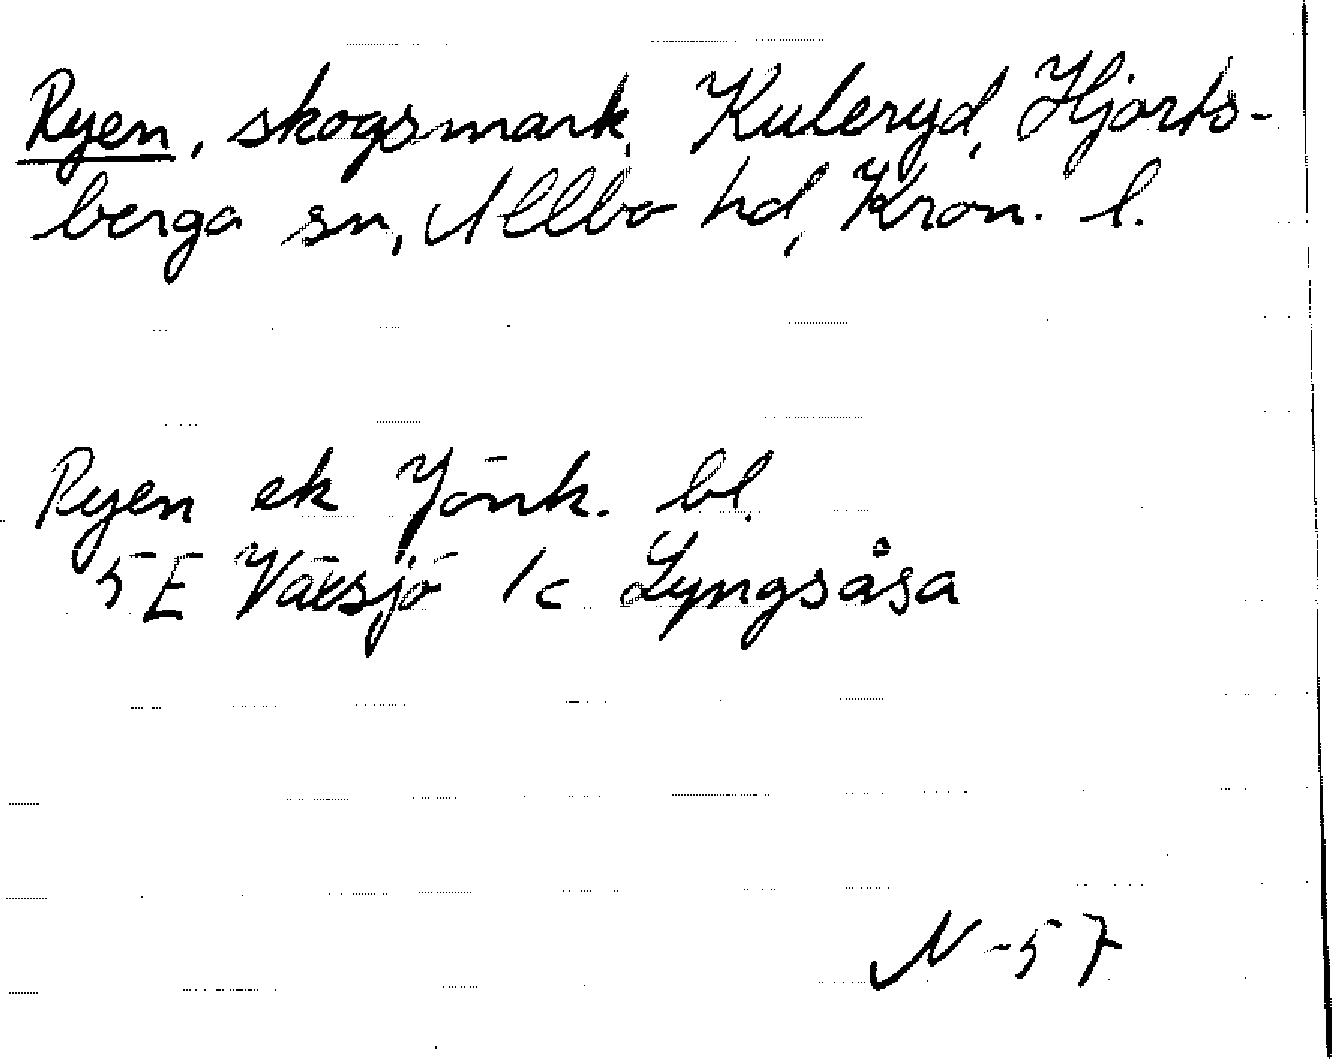 Ryen, skogsmark, Kuleryd, Hjorts-
berga sn, Allbo hd, Kron. l.
Ryen ek Jönk. bl.
5E Växsjö 1c Lyngsåsa
N-57